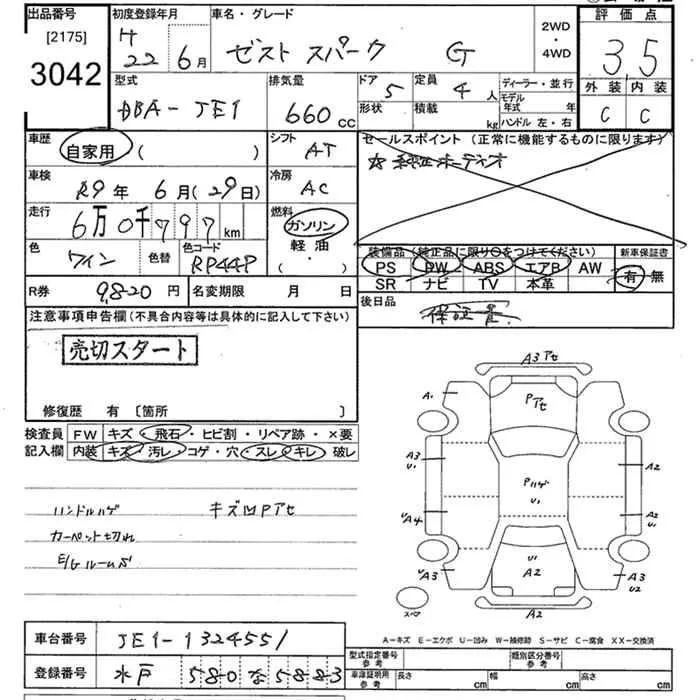 出品番号 初度登録年月 車名・グレード 2WD・4WD 評価点
[2175] 3042 H22 6月 ゼスト スパーク G 35
型式 排気量 ドア 5 定員 4人 ディーラー・並行 外装 内装
DBA-JE1 660cc 形状 積載 kg モデル年式 年 C C
ハンドル 左・右
車歴 自家用 ( ) シフト AT セールスポイント (正常に機能するものに限ります)
☆純正オーディオ
車検 R9年 6月(29日) 冷房 AC
走行 6万0千797km 燃料 ガソリン 軽油 ( ・ )
色 ワイン 色替 色コード RP44P
装備品 (純正品に限り○をつけてください) 新車保証書
PS PW ABS エアB AW 有・無
SR ナビ TV 本革
R券 9,820円 名変期限 月 日 後日品 保証書
注意事項申告欄 (不具合内容等は具体的に記入して下さい)
売切スタート
修復歴 有 〔箇所 〕
検査員記入欄 FW キズ・飛石・ヒビ割・リペア跡・×要
内装 キズ・汚レ・コゲ・穴・スレ・キレ・破レ
ハンドルハゲ キズ凹Pアセ
カーペット切れ
E/Gルームサ
A3 アセ
Pアセ
A1
A3 U1
A2
Pハゲ U1
UA4
A2 U1
U1 A2
UA3
A3 U2
A2
スペア
A-キズ E-エクボ U-凹み W-補修跡 S-サビ C-腐食 XX-交換済
車台番号 JE1-1324551
登録番号 水戸 580 な 5883
型式指定番号 参考 類別区分番号 参考
車庫証明用 参考 長さ cm 幅 cm 高さ cm